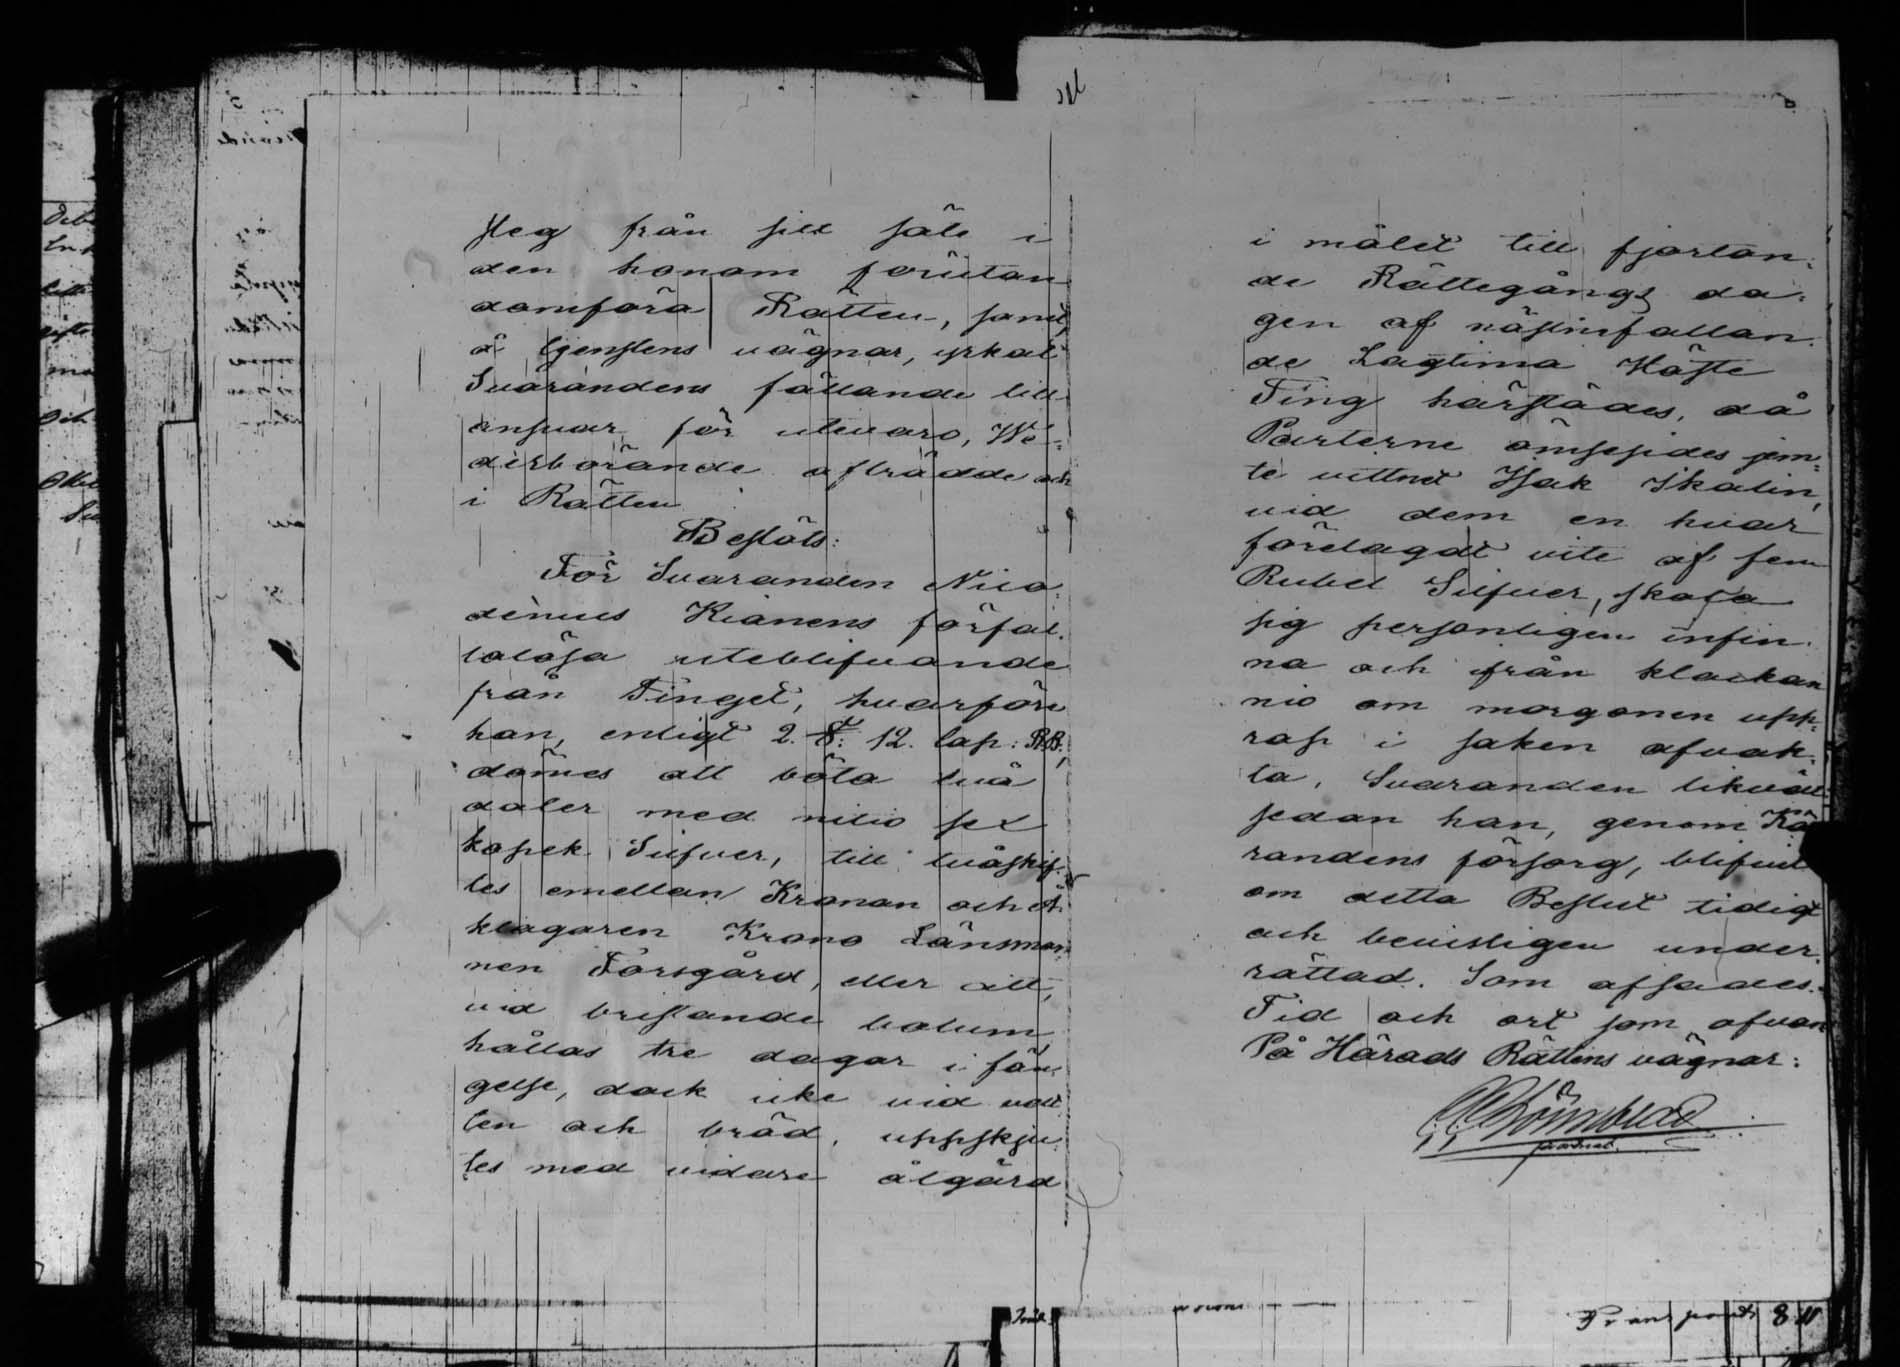 steg från sitt säte i
den honom förutan
domföra Rätten, samt,
å tjenstens vägnar, yrkat
Svarandens fällande till
ansvar för utevaro, We-
derbörande afträdde och
i Rätten
Beslöts:
För Svaranden Nico-
demus Kianens förfal-
lolösa uteblifvande
från Tinget, hvarföre
han, enligt 2. §: 12. Cap: R.B.,
dömes att böta två
daler med nitio sex
kopek Silfver, till tvåskif-
tes emellan Kronan och Å-
klagaren Krono Länsman-
nen Forsgård, eller att,
vid bristande botum,
hållas tre dagar i fän-
gelse, dock icke vid vat-
ten och bröd, uppskju-
tes med vidare åtgärd
i målet till fjorton-
de Rättegångs da-
gen af nästinfallan-
de Lagtima Höste
Ting härstädes, då
Parterne ömsesides jem-
te vittnet Isak Skalin,
vid dem en hvar
förelagdt vite af fem
Rubel Silfver, skola
sig personligen infin-
na och från klockan
nio om morgonen upp-
rop i saken afvak-
ta, Svaranden likväl
sedan han, genom Kä-
randens försorg, blifvit
om detta Beslut tidigt
och bevisligen under-
rättad. Som afsades.
Tid och ort som ofvan
På Härads Rättens vägnar:
Transport 8